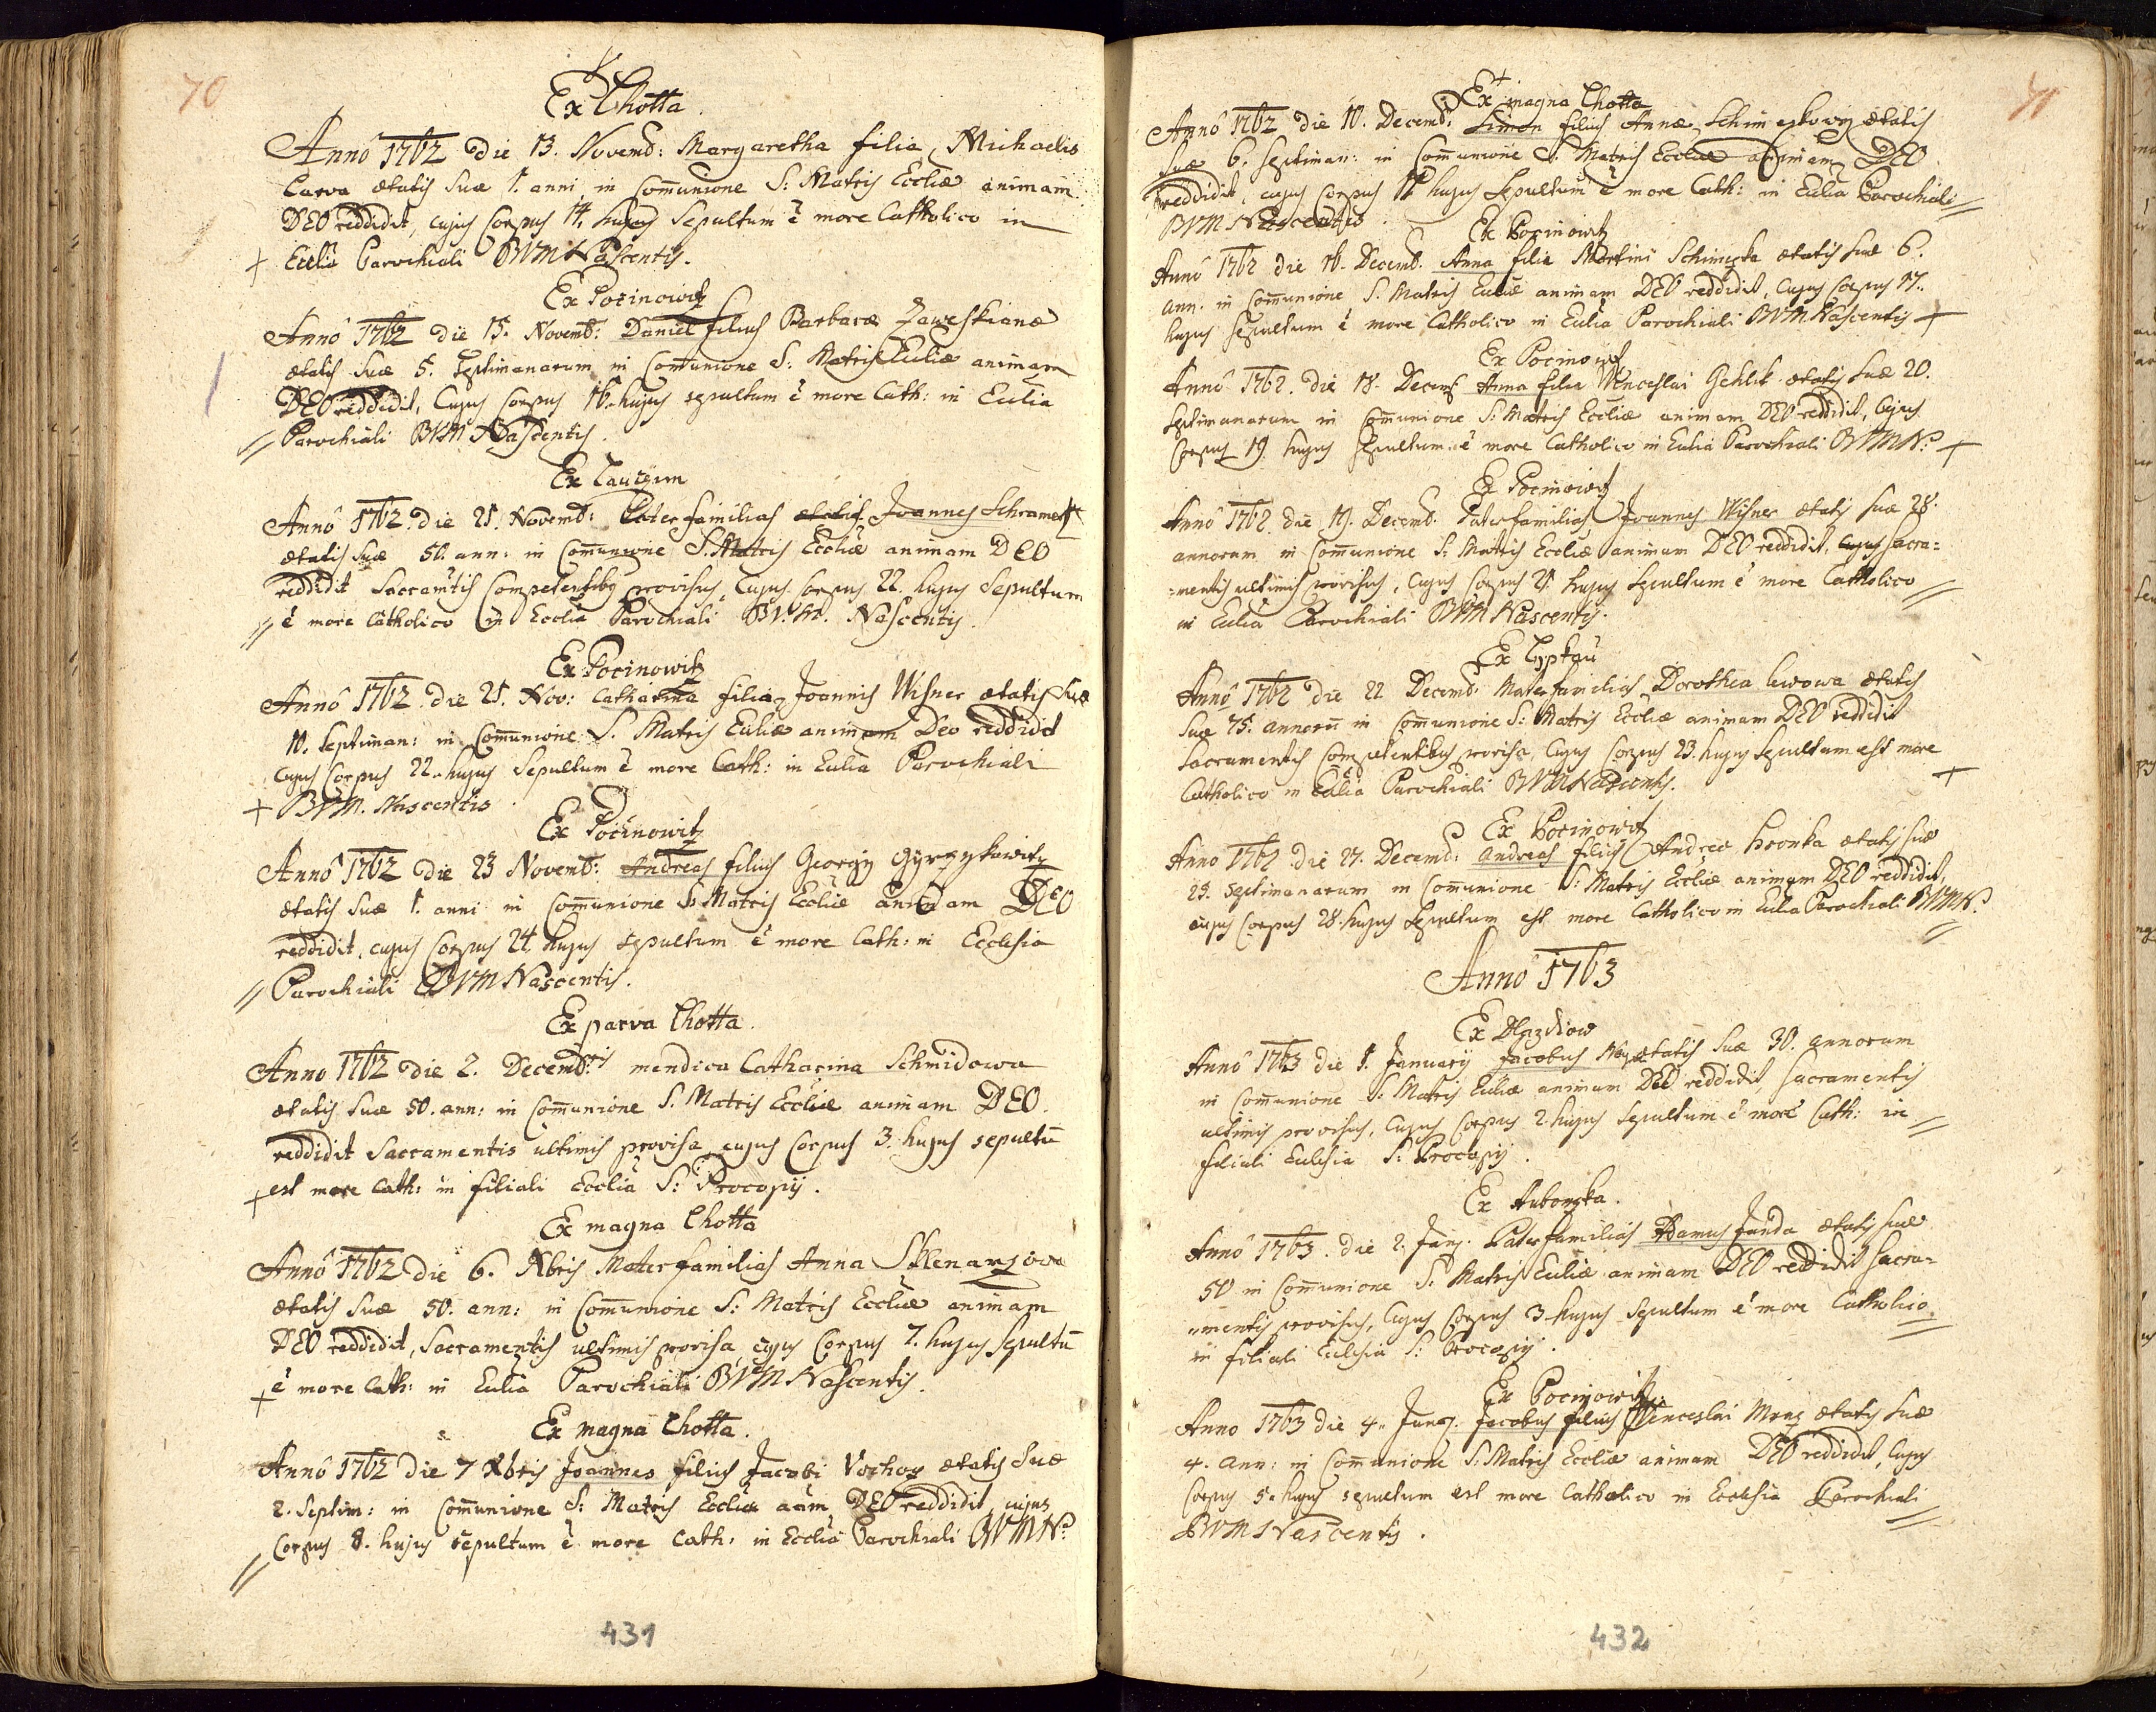 70
Ex Lhotta.
Anno 1762 die 13. Novemb: Margaretha filia Michaelis
Carva ætatis suæ 1. anni in Communione S: Matris Eccliæ animam
DEO reddidit, cujus Corpus 14. hujus Sepultum ē more Catholico in
Ecclia Parochiali BVM Nascentis.
Ex Pocinowitz
Anno 1762 die 15. Novemb: Daniel filius Barbaræ Zaweskianæ
ætatis suæ 5. Septimanarum in Communione S: Matris Eccliæ animam
DEO reddidit, Cujus Corpus 16. hujus sepultum ē more Cath: in Ecclia
Parochiali BVM Nascentis.
Ex Lautzim
Anno 1762. die 21. Novemb: Pater familias ætatis Joannes Schramek
ætatis suæ 50. ann: in Communione S. Matris Eccliæ animam DEO
reddidit Sacramtis Competentibq provisus, Cujus Corpus 22. hujus Sepultum
ē more Catholico in Ecclia Parochiali B.V.M. Nascentis.
Ex Pocinowitz
Anno 1762. die 21. Nov: Catharina filia Joannis Wisner ætatis suæ
10. Septiman: in Communione S. Matris Eccliæ animam Deo reddidit
Cujus Corpus 22. hujus Sepultum ē more Cath: in Ecclia Parochiali
BVM. Nascentis.
Ex Pocinowitz
Anno 1762 die 23 Novemb: Andreas filius Georgij Gyrzykowitz
ætatis suæ 1. anni in Communione S. Matris Eccliæ animam DEO
reddidit, cujus Corpus 24. hujus sepultum ē more Cath: in Ecclesia
Parochiali BVM Nascentis.
Ex parva Lhotta.
Anno 1762 die 2. Decembris mendica Catharina Schmidowa
ætatis suæ 50. ann: in Communione S. Matris Eccliæ animam DEO.
reddidit Sacramentis ultimis provisa, cujus Corpus 3. hujus sepultū
est more Cath: in filiali Ecclia S: Procopij.
Ex magna Lhotta
Anno 1762 die 6. Xbris Mater familias Anna Sklenarzowa
ætatis suæ 50. ann: in Communione S: Matris Eccliæ animam
DEO reddidit, Sacramentis ultimis provisa, cujus Corpus 7. hujus sepultū
ē more Cath: in Ecclia Parochiali BVM Nascentis.
Ex magna Lhotta.
Anno 1762 die 7 Xbris Joannes filius Jacobi ætatis suæ
2. Septim: in Communione S: Matris Eccliæ aām DEO reddidit, cujus
Corpus 8. hujus sepultum ē more Cath: in Ecclia Parochiali BVMN.
431
71
Ex magna Lhotta
Anno 1762 die 10. Decemb: Simon filius Annæ ætatis
suæ 6. Septiman: in Communione S: Matris Eccliæ animam DEO
reddidit, cujus Corpus hujus Sepultum ē more Cath: in Ecclia Parochiali
BVM Nascentis.
Ex Pocinowitz
Anno 1762 die 16. Decemb. Anna filia Martini Schimeczka ætatis suæ 6.
ann. in Communione S. Matris Eccliæ animam DEO reddidit, Cujus Corpus 17.
hujus sepultum ē more Catholico in Ecclia Parochiali BVM Nascentis
Ex Pocinowitz
Anno 1762. die 18. Decemb Anna filia Wenceslai Gehlik ætatis suæ 20.
Septimanarum in Communione S: Matris Eccliæ animam DEO reddidit, Cujus
Corpus 19 hujus sepultum ē more Catholico in Ecclia Parochiali BVMN.
Ex Pocinowitz
Anno 1762 die 19. Decemb. Pater familias Joannes Wisner ætatis suæ 28.
annorum in Communione S: Matris Eccliæ animam DEO reddidit, cujus sacra=
=mentis ultimis provisus, Cujus Corpus 21. hujus Sepultum ē more Catholico
in Ecclia Parochiali BVM Nascentis.
Ex Lypkau
Anno 1762 die 22 Decemb: Mater familias Dorothea lewowa ætatis
suæ 75. annorū in Communione S: Matris Eccliæ animam DEO reddidit
Sacramentis Competentibus provisa, Cujus Corpus 23. hujus Sepultum est more
Catholico in Ecclia Parochiali BVM Nascentis.
Ex Pocinowitz
Anno 1762 die 27. Decemb: Andreas filius Andreæ Hronka ætatis suæ
25. Septimanarum in Communione S: Matris Eccliæ animam DEO reddidit,
cujus Corpus 28. hujus Sepultum est more Catholico in Ecclia Parochiali BVMN.
Anno 1763
Ex Dlazdiow
Anno 1763 die 1. January Jacobus ætatis suæ 30. annorum
in Communione S: Matris Eccliæ animam DEO reddidit, Sacramentis
ultimis provisus, Cujus Corpus 2. hujus Sepultum ē more Cath: in
filiali Ecclesia S: Procopij.
Ex Auborska.
Anno 1763. die 2. Janj. Pater familias Adamus Janda ætatis suæ
50 in Communione S: Matris Eccliæ animam DEO reddidit Sacra=
=mentis provisus, Cujus Corpus 3. hujus Sepultum ē more Catholico.
in filiali Ecclesia S: Procopij.
Ex Pocinowitz
Anno 1763 die 4. Janj. Jacobus filius Wenceslai ætatis suæ
4. ann: in Communione S: Matris Eccliæ animam DEO reddidit, Cujus
Corpus 5. hujus sepultum est more Catholico in Ecclesia Parochiali
BVM Nascentis.
432